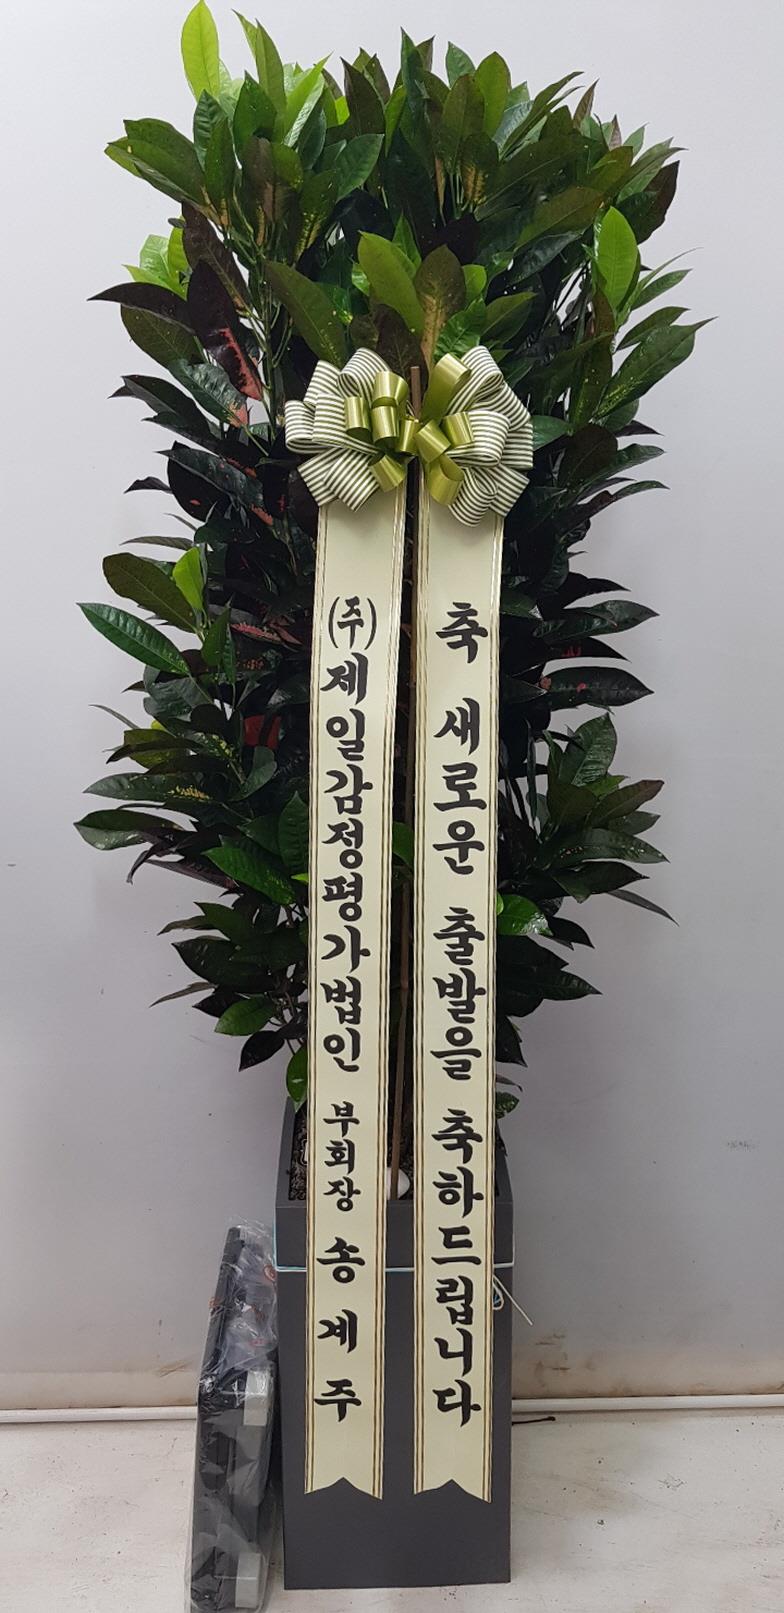 축 새로운 출발을 축하드립니다
(주)제일감정평가법인 부회장 송계주